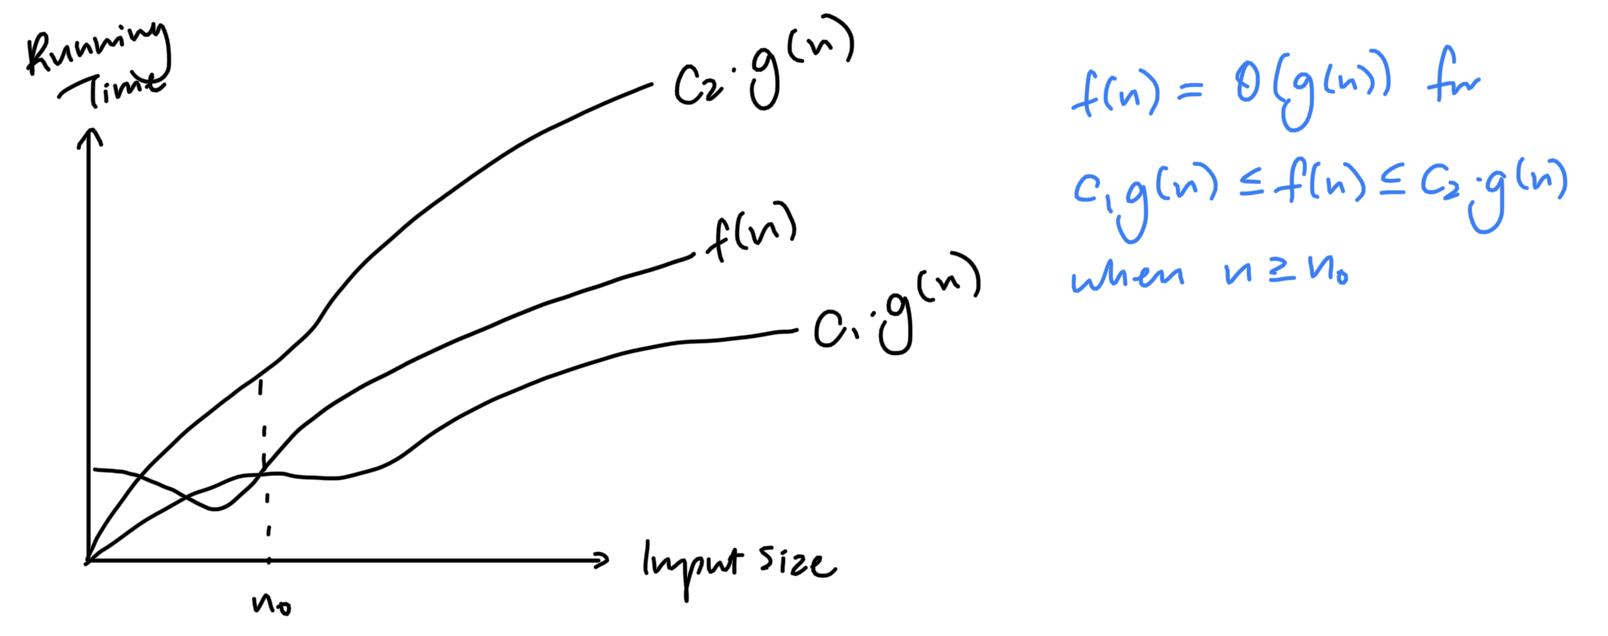 Running
Time
C₂·g(n)
f(n)
C₁·g(n)
Input size
n₀
f(n) = θ(g(n)) for
C₁g(n) ≤ f(n) ≤ C₂·g(n)
when n ≥ n₀